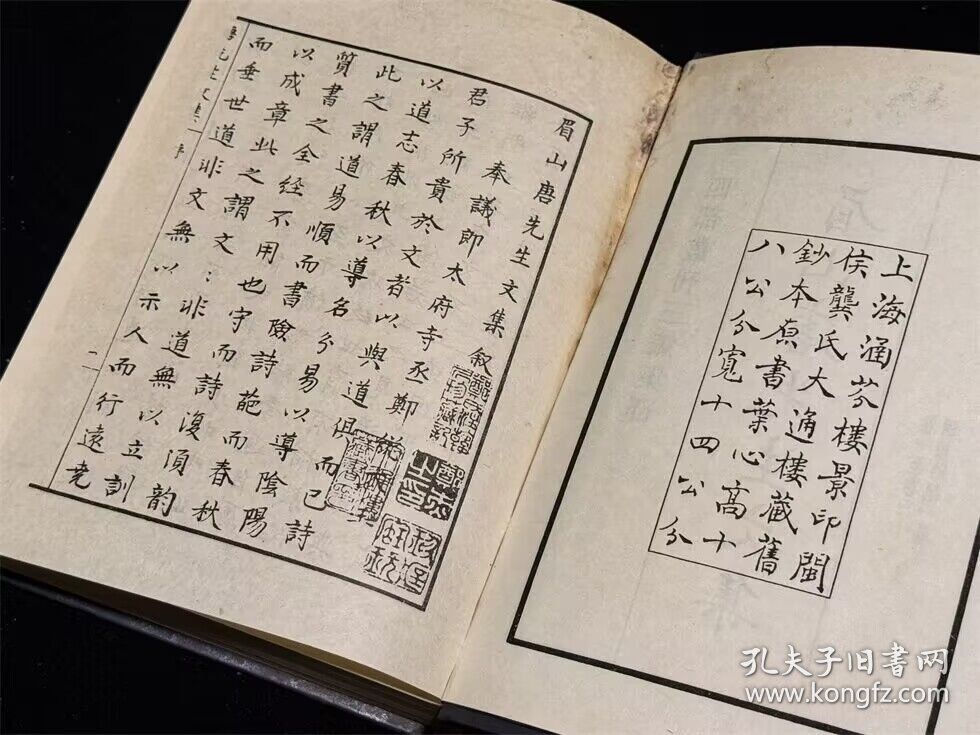 上海涵芬樓景印閩
侯龔氏大通樓藏舊
鈔本原書葉心高十
八公分寬十四公分
眉山唐先生文集叙
奉議郎太府寺丞鄭
君子所貴於文者以與道俱而已詩
以道志春秋以導名分易以導陰陽
此之謂道易順而書險詩葩而春秋
質書之全經不用也守而詩復須韵
以成章此之謂文〻非道無以立訓
而垂世道非文無以示人而行遠堯
唐先生文集 序
一
孔夫子旧书网
www.kongfz.com